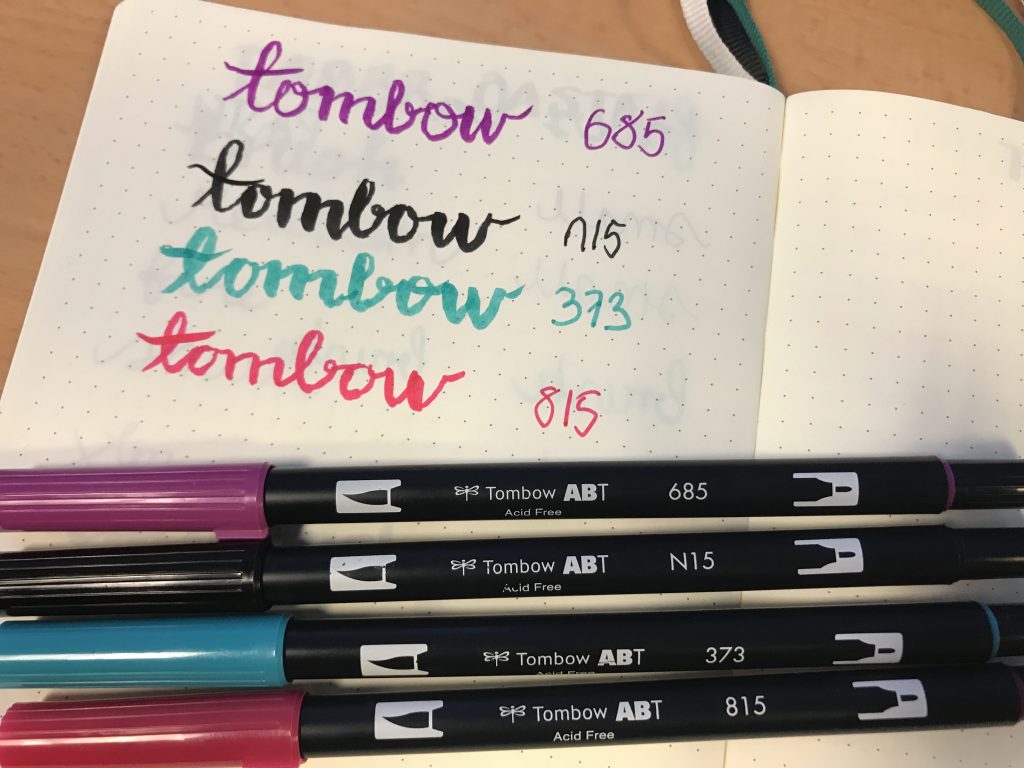 tombow 685
tombow n15
tombow 373
tombow 815
Tombow ABT 685
Acid Free
Tombow ABT N15
Acid Free
Tombow ABT 373
Acid Free
Tombow ABT 815
Acid Free